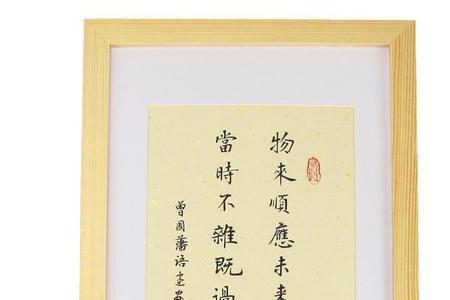 物來順應未來
當時不雜既過
曾國藩語